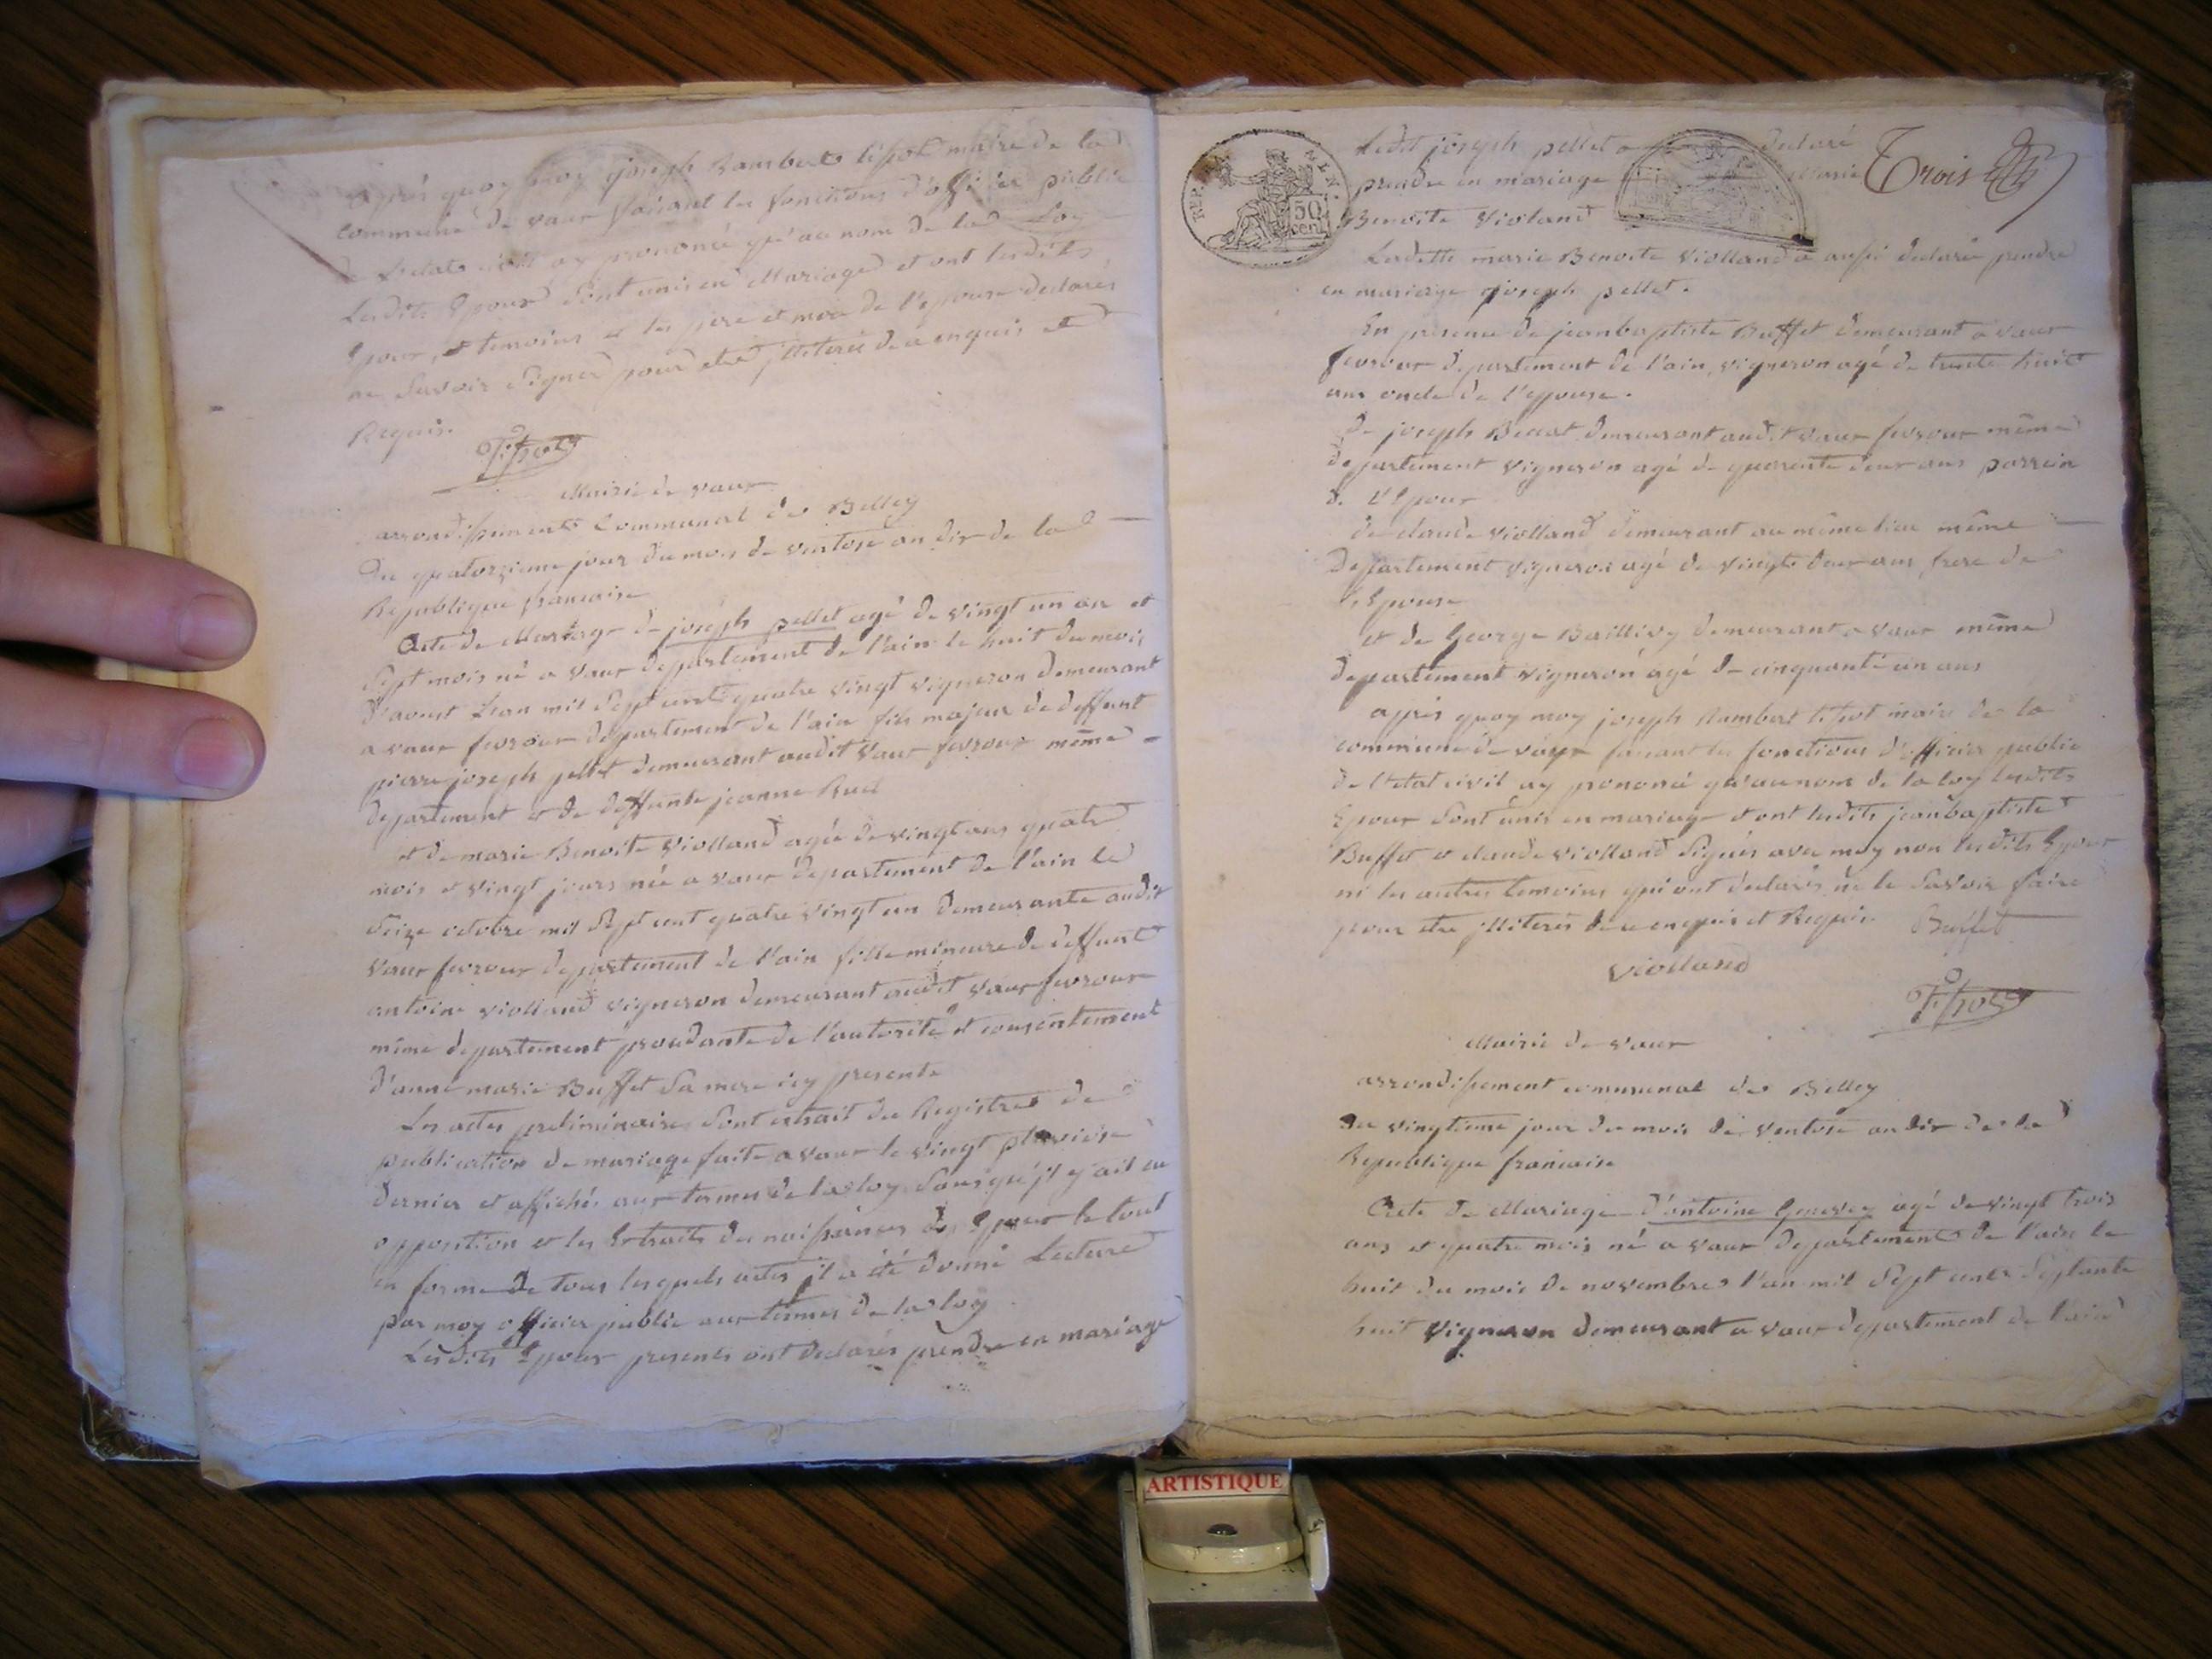 après quoy moy joseph Rambert tipot maire de la
commune de vaux faisant les fonctions d'officier public
de l'etat civil ay prononcé qu'au nom de la Loy
Lesdits Epoux sont unis en Mariage et ont lesdits
Epoux, et temoins et les pere et mere de l'epouse declarés
ne savoir signer pour etre jlliterés de ce enquis et
Requis.
Tipot
Mairie de vaux
arrondissement Communal de Belley
Du quatorzieme jour du mois de ventose an dix de la
Republique francaise
Acte de Mariage de joseph pellet agé de vingt un an et
sept mois né a vaux departement de l'ain le huit du mois
d'aoust Lan mil sept cent quatre vingt vigneron demeurant
a vaux fevroux departement de l'ain fils majeur de deffunt
pierre joseph pellet demeurant audit vaux fevroux même
departement et de deffunte jeanne
et de marie Benoite Violland agée de vingt ans quatre
mois et vingt jours née a vaux departement de l'ain le
seize octobre mil sept cent quatre vingt un demeurante audit
vaux fevroux departement de l'ain fille mineure de deffunt
antoine violland vigneron demeurant audit vaux fevroux
même departement procedante de l'autorité et consentement
d'anne marie Buffet sa mere icy presente
Les actes preliminaires sont extrait du Registre de
publication de mariage faite a vaux le vingt pluviose
dernier et affichés aux termes de la loy sans qu'jl y ait eu
opposition et les Extraits des naissances des Epoux le tout
en forme de tous lesquels actes jl a été donné Lecture
par moy officier public aux termes de la loy
Lesdits Epoux presents ont declarés prendre en mariage
REP. FRA. FIN.
50 cent
Ledit joseph pellet a declaré
prendre en mariage Marie
Trois
Benoite Violand
Ladette marie Benoite Violland a aussi declaré prendre
en mariage joseph pellet.
En presence de jeanbaptiste Buffet demeurant a vaux
fevroux departement de l'ain, vigneron agé de trente huit
ans oncle de l'epouse.
De joseph demeurant audit vaux fevroux même
departement vigneron agé de quarente deux ans parrein
de l'Epoux
de claude violland demeurant au même lieu même
Departement vigneron agé de vingt deux ans frere de
l'Epouse
et de George Baillivy demeurant a vaux même
departement vigneron agé de cinquante un ans
après quoy moy joseph Rambert tipot maire de la
commune de vaux faisant les fonctions d'officier public
de l'etat civil ay prononcé qu'au nom de la loy lesdits
Epoux sont unis en mariage et ont lesdits jeanbaptiste
Buffet et claude violland signés avec moy non lesdits Epoux
ni les autres temoins qui ont declarés ne le savoir faire
pour etre jlliterés de ce enquis et Requis. Buffet
violland
Tipot
Mairie de vaux
arrondissement communal de Belley
Du vingtieme jour du mois de ventose an dix de la
Republique francaise
Acte de Mariage d'antoine agé de vingt trois
ans et quatre mois né a vaux departement de l'ain le
huit du mois de novembre l'an mil sept cents septante
huit vigneron demeurant a vaux departement de l'ain
ARTISTIQUE